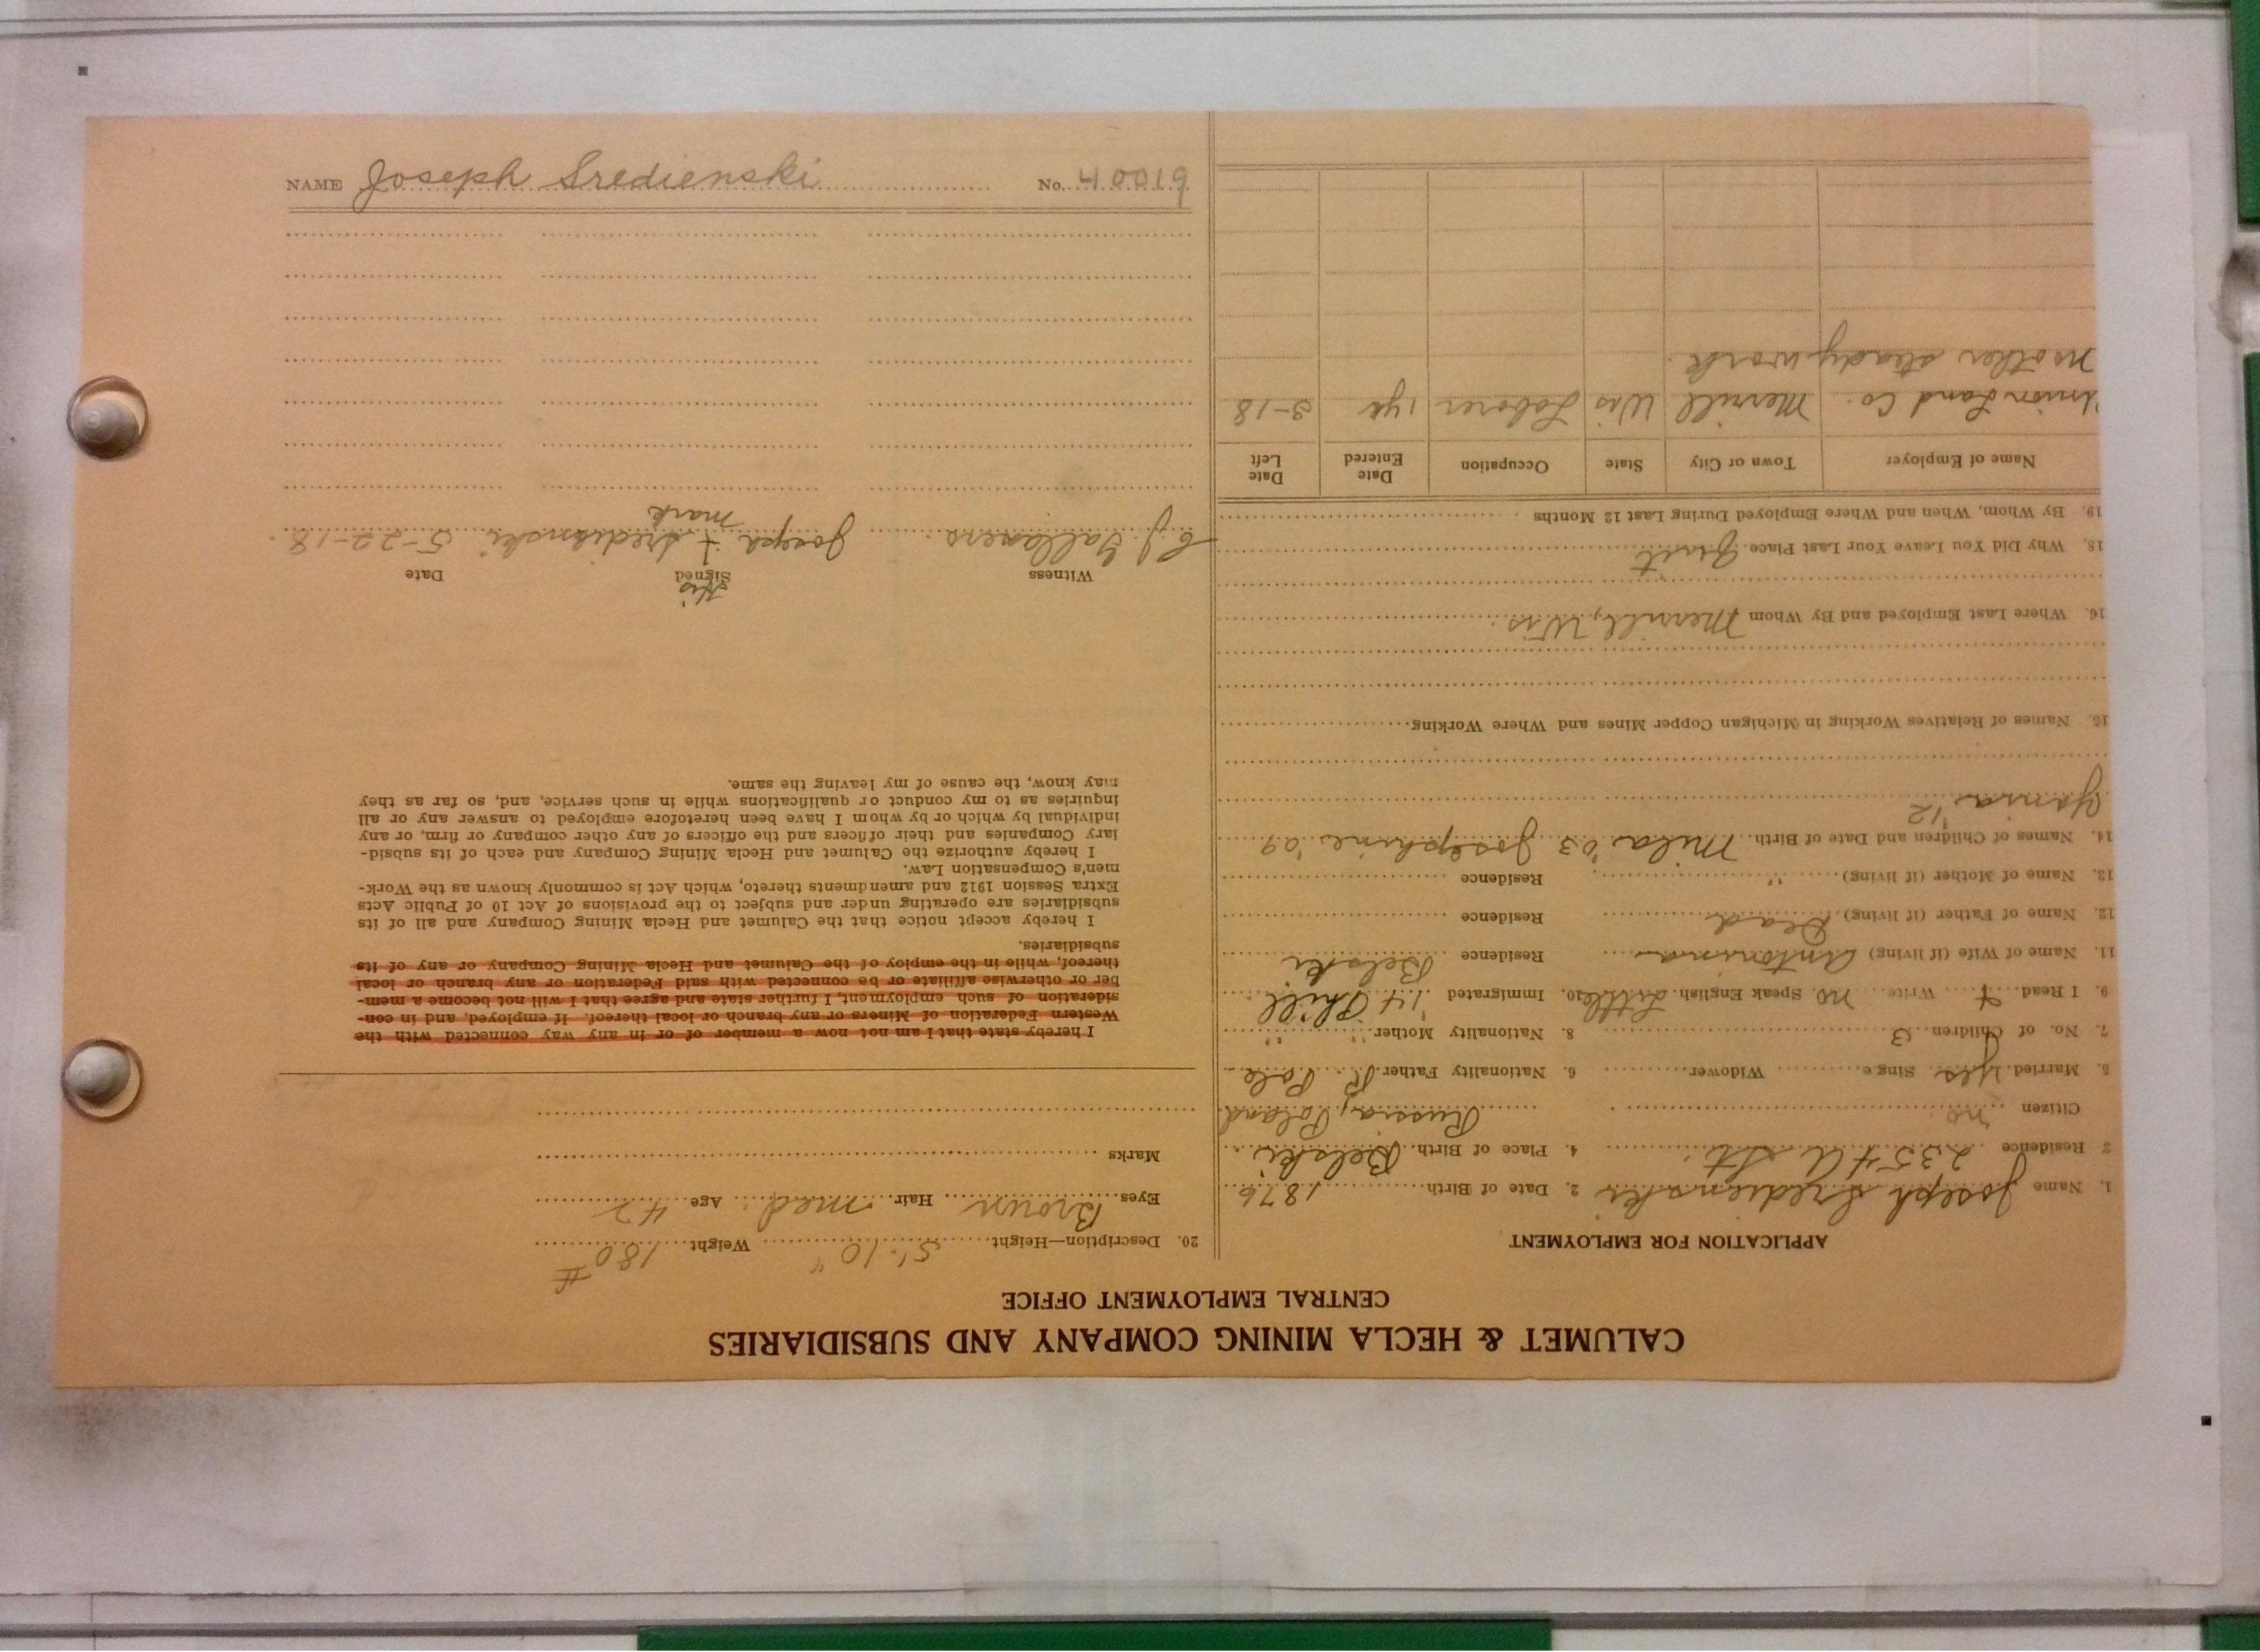 NAME Joseph Sredienski No. 40019
CALUMET & HECLA MINING COMPANY AND SUBSIDIARIES
CENTRAL EMPLOYMENT OFFICE
APPLICATION FOR EMPLOYMENT
1. Name Joseph Sredienski 2. Date of Birth 1876
3 Residence 2354 A St. 4. Place of Birth Belski
Citizen no Russia, Poland
5. Married Yes Single Widower 6. Nationality Father R. Pole
7. No. of Children 3 8. Nationality Mother " "
9. I Read Write no Speak English Little 10. Immigrated '14 Phill
11. Name of Wife (if living) Antonina Residence Belski
12. Name of Father (if living) Dead Residence
13. Name of Mother (if living) " Residence
14. Names of Children and Date of Birth Mila '03 Josephine '09
'12
15. Names of Relatives Working in Michigan Copper Mines and Where Working
16. Where Last Employed and By Whom Merrill, Wis.
18. Why Did You Leave Your Last Place Quit
19. By Whom, When and Where Employed During Last 12 Months
Name of Employer Town or City State Occupation Date Entered Date Left
Union Land Co. Merrill Wis Laborer 1 yr 3-18
No other steady work.
20. Description—Height 5'-10" Weight 180 #
Eyes Brown Hair med. Age 42
Marks
I hereby state that I am not now a member of or in any way connected with the
Western Federation of Miners or any branch or local thereof. If employed, and in con-
sideration of such employment, I further state and agree that I will not become a mem-
ber or otherwise affiliate or be connected with said Federation or any branch or local
thereof, while in the employ of the Calumet and Hecla Mining Company or any of its
subsidiaries.
I hereby accept notice that the Calumet and Hecla Mining Company and all of its
subsidiaries are operating under and subject to the provisions of Act 10 of Public Acts
Extra Session 1912 and amendments thereto, which Act is commonly known as the Work-
men's Compensation Law.
I hereby authorize the Calumet and Hecla Mining Company and each of its subsid-
iary Companies and their officers and the officers of any other company or firm, or any
individual by which or by whom I have been heretofore employed to answer any or all
inquiries as to my conduct or qualifications while in such service, and, so far as they
may know, the cause of my leaving the same.
Witness Signed Date
His
Joseph + Sredienski 5-22-18.
mark